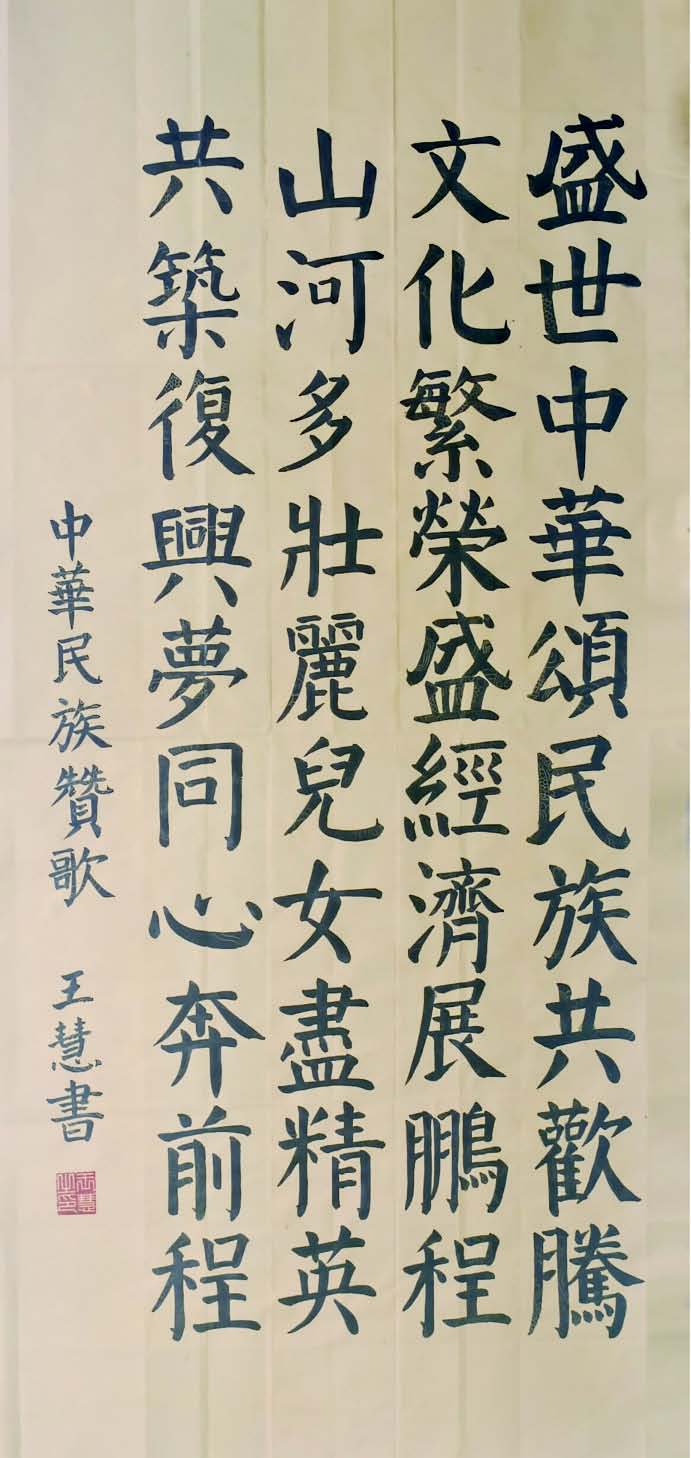 盛世中華頌民族共歡騰
文化繁榮盛經濟展鵬程
山河多壯麗兒女盡精英
共築復興夢同心奔前程
中華民族贊歌 王慧書
王慧之印